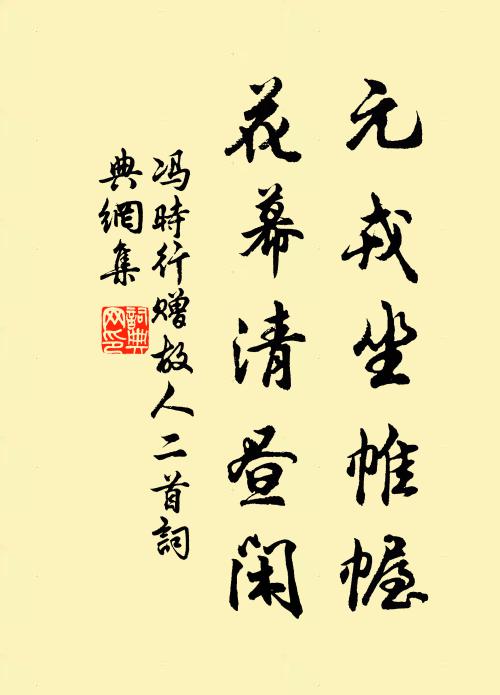 元戎坐帷幄
花幕清昼閑
冯時行赠故人二首詞
典網集
詞典网印